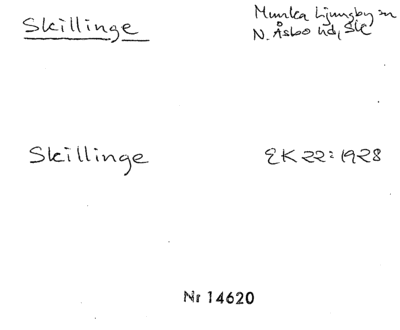 Skillinge
Munka Ljungby sn
N. Åsbo hd, Sk
Skillinge
EK 22:1928
Nr 14620